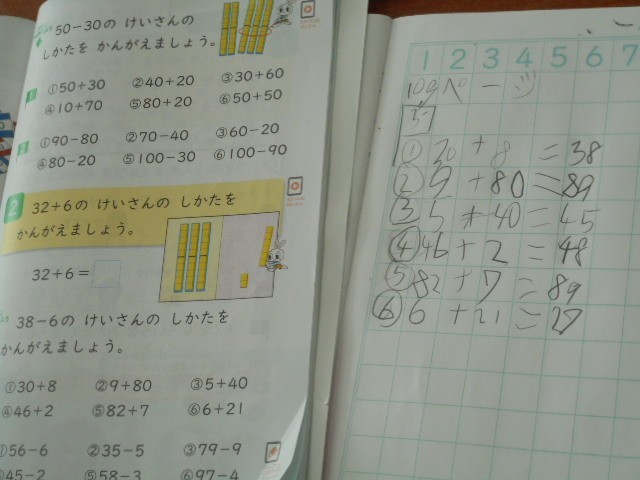 50-30の けいさんの
しかたを かんがえましょう。
①50+30 ②40+20 ③30+60
④10+70 ⑤80+20 ⑥50+50
①90-80 ②70-40 ③60-20
④80-20 ⑤100-30 ⑥100-90
2 32+6の けいさんの しかたを
かんがえましょう。
32+6=
38-6の けいさんの しかたを
かんがえましょう。
①30+8 ②9+80 ③5+40
④46+2 ⑤82+7 ⑥6+21
①56-6 ②35-5 ③79-9
④45-2 ⑤58-3 ⑥97-4
1 2 3 4 5 6 7
109ページ
①30+8=38
②9+80=89
③5+40=45
④46+2=48
⑤82+7=89
⑥6+21=27